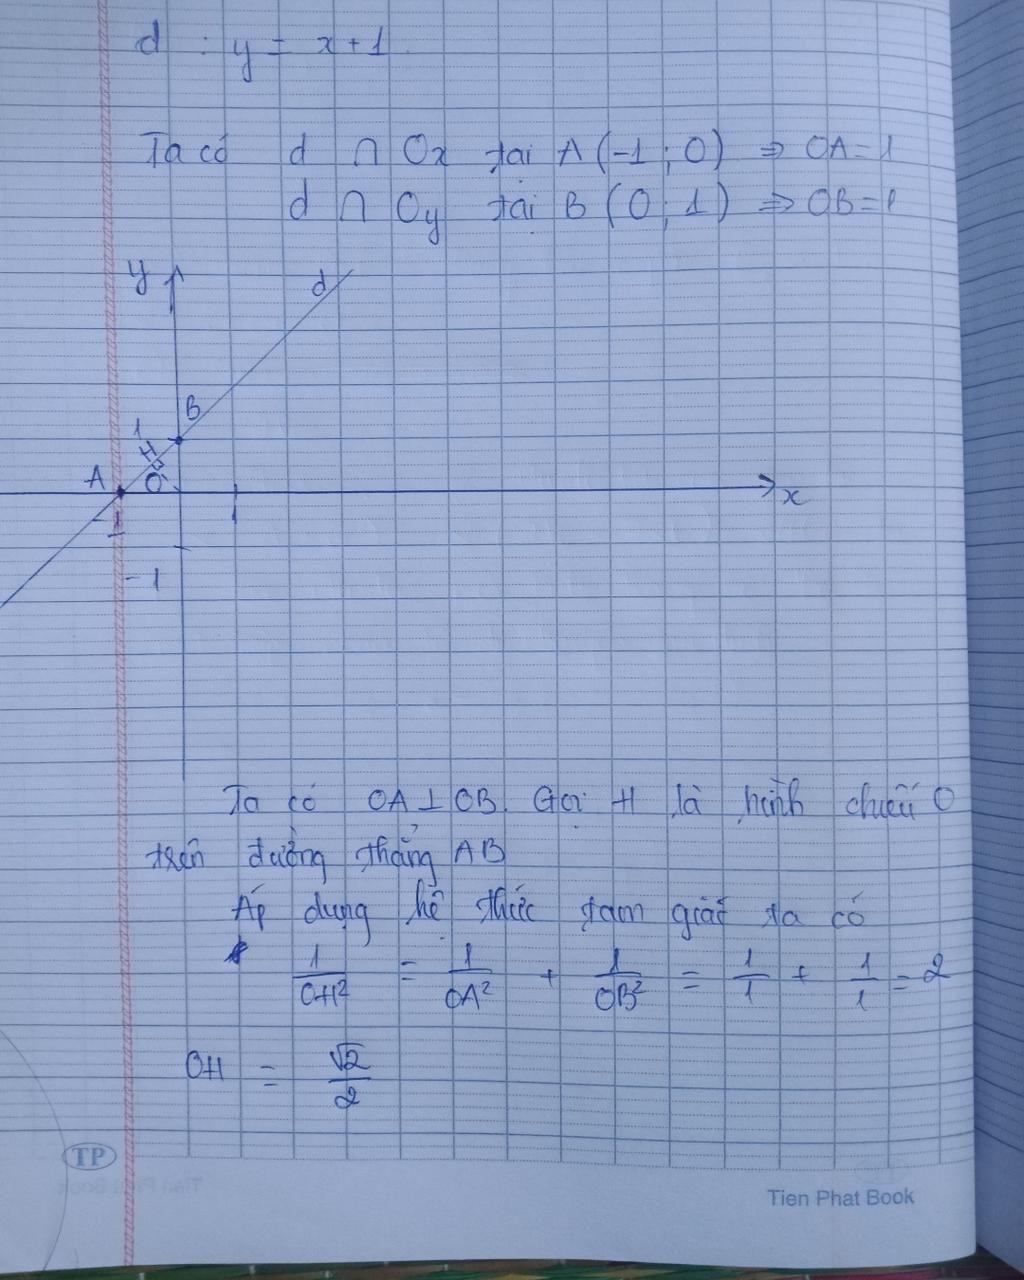 d : y = x + 1
Ta có d ∩ Ox tại A (-1 ; 0) ⇒ OA = 1
d ∩ Oy tại B (0 ; 1) ⇒ OB = 1
y
d
B
1
H
A
O
x
-1
1
-1
Ta có OA ⊥ OB. Gọi H là hình chiếu O
trên đường thẳng AB
Áp dụng hệ thức tam giác ta có
1/OH² = 1/OA² + 1/OB² = 1/1 + 1/1 = 2
OH = √2/2
TP
Tien Phat Book